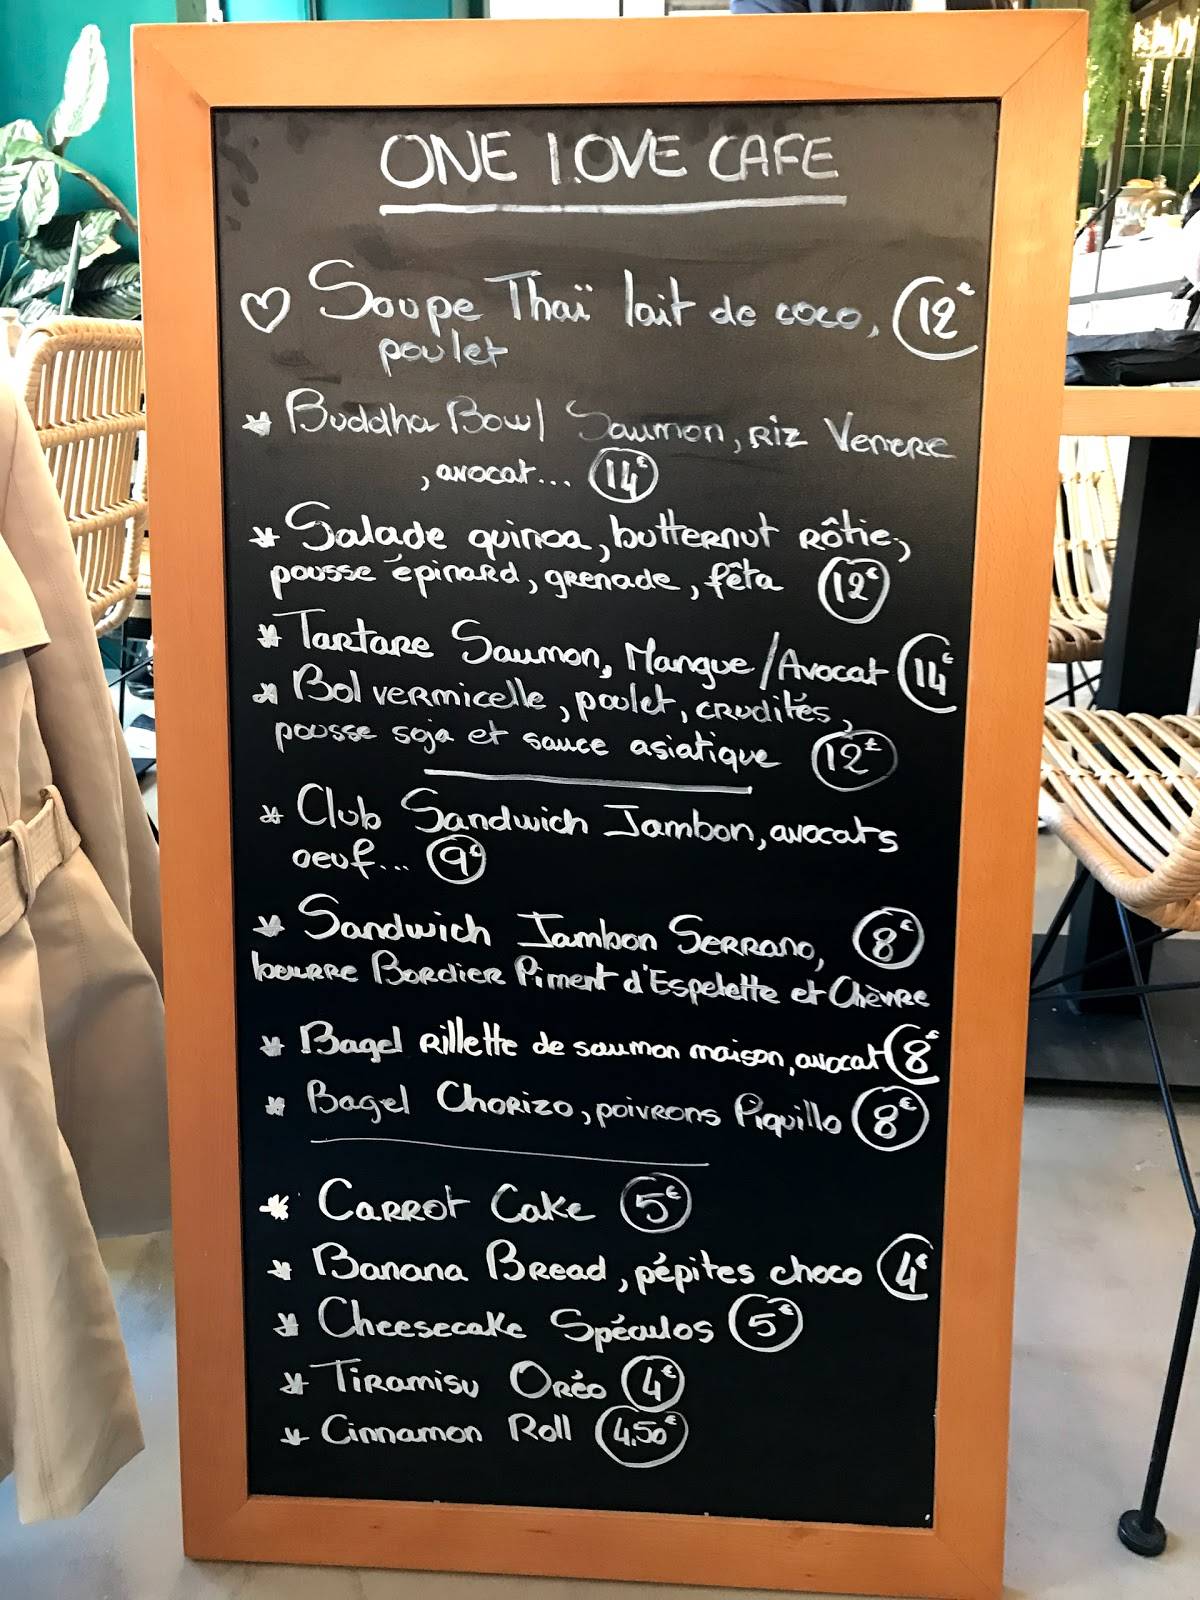 ONE LOVE CAFE
Soupe Thaï lait de coco, 12€
poulet
* Buddha Bowl Saumon, riz Venere
, avocat... 14€
* Salade quinoa, butternut rôtie,
pousse épinard, grenade, fêta 12€
* Tartare Saumon, Mangue/Avocat 14€
* Bol vermicelle, poulet, crudités,
pousse soja et sauce asiatique 12€
* Club Sandwich Jambon, avocats
oeuf... 9€
* Sandwich Jambon Serrano, 8€
beurre Bordier Piment d'Espelette et Chèvre
* Bagel rillette de saumon maison, avocat 8€
* Bagel Chorizo, poivrons Piquillo 8€
* Carrot Cake 5€
* Banana Bread, pépites choco 4€
* Cheesecake Spéculos 5€
* Tiramisu Oréo 4€
* Cinnamon Roll 4,50€